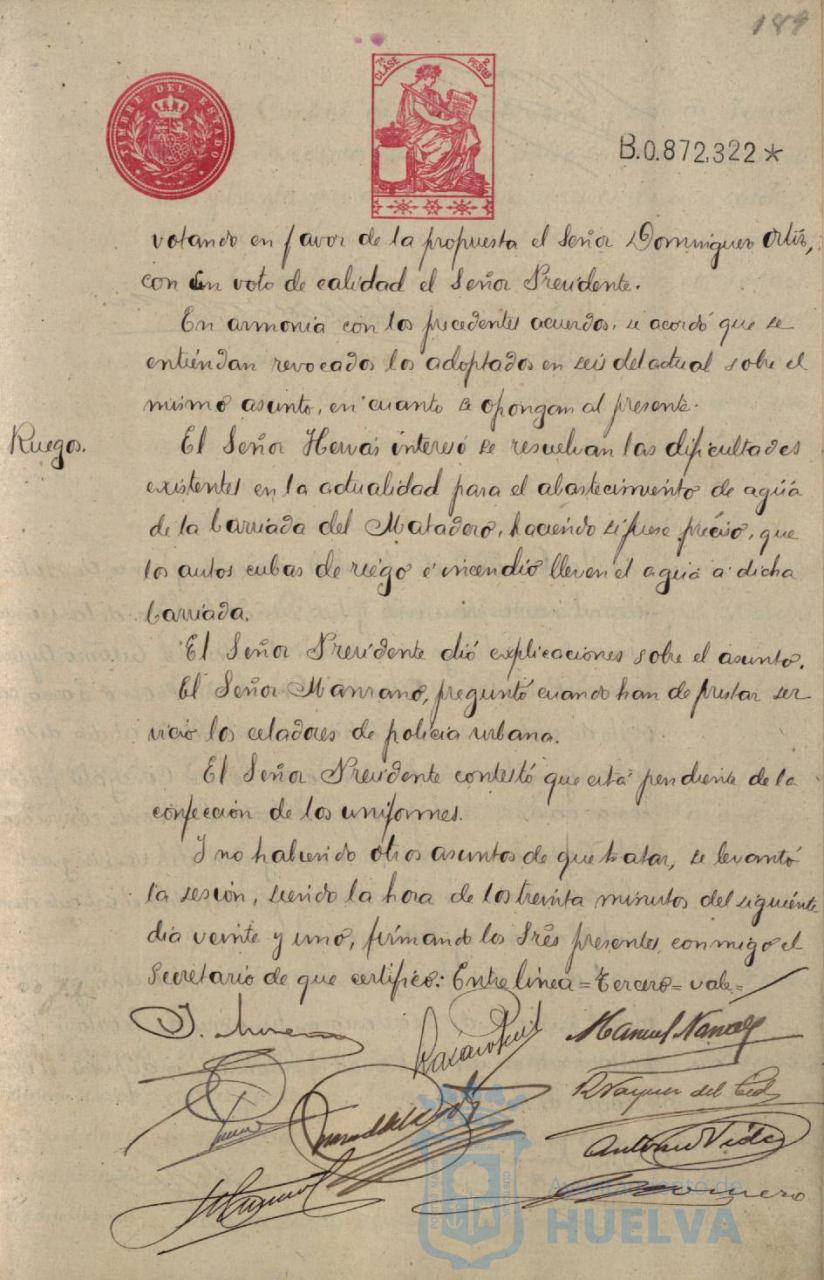 189
TIMBRE DEL ESTADO
7ª CLASE 2 PESETAS
B.0.872,322*
votando en favor de la propuesta el Señor Dominguez Ortiz,
con su voto de calidad el Señor Presidente.
En armonia con los precedentes acuerdos, se acordó que se
entiendan revocados los adoptados en seis del actual sobre el
mismo asunto, en cuanto se opongan al presente.
Ruegos.
El Señor Hervás interesó se resuelvan las dificultades
existentes en la actualidad para el abastecimiento de agua
de la barriada del Matadero, haciendo si fuese preciso, que
los autos cubas de riego é incendio lleven el agua a dicha
barriada.
El Señor Presidente dió explicaciones sobre el asunto.
El Señor Manzano, preguntó cuando han de prestar ser
vicio los celadores de policia urbana.
El Señor Presidente contestó que está pendiente de la
confección de los uniformes.
Y no habiendo otros asuntos de que tratar, se levantó
la sesión, siendo la hora de los treinta minutos del siguiente
dia veinte y uno, firmando los Srēs presentes, conmigo el
Secretario de que certifico: Entre linea = tercero = vale =
Manuel
Antonio
Romero
Ayuntamiento de
HUELVA